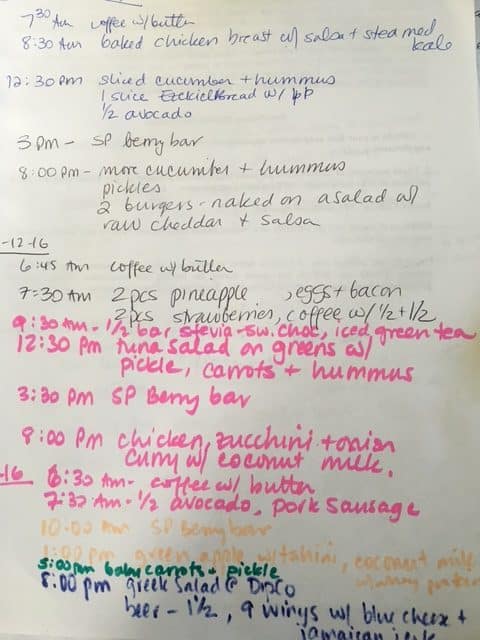 7:30 Am coffee w/ butter
8:30 Am baked chicken breast w/ salsa + steamed
kale
12:30 pm sliced cucumber + hummus
1 slice Ezekiel Bread w/ pp
1/2 avocado
3 pm - SP berry bar
8:00 pm - more cucumber + hummus
pickles
2 burgers - naked on a salad w/
raw cheddar + salsa
-12-16
6:45 Am coffee w/ butter
7:30 AM 2 pcs pineapple, eggs + bacon
2 pcs strawberries, coffee w/ 1/2 + 1/2
9:30 Am - 1/2 bar stevia-sw. choc, iced green tea
12:30 Pm tuna salad on greens w/
pickle, carrots + hummus
3:30 pm SP Berry bar
8:00 PM chicken, zucchini + onion
curry w/ coconut milk.
-16 6:30 Am - coffee w/ butter
7:32 Am - 1/2 avocado, pork sausage
10:00 Am SP berry bar
1:00 pm green apple w/ tahini, coconut milk
w/
5:00 pm baby carrots + pickle
8:00 pm greek salad @ Disco
beer - 1 1/2, 9 wings w/ blue cheese +
jamaican